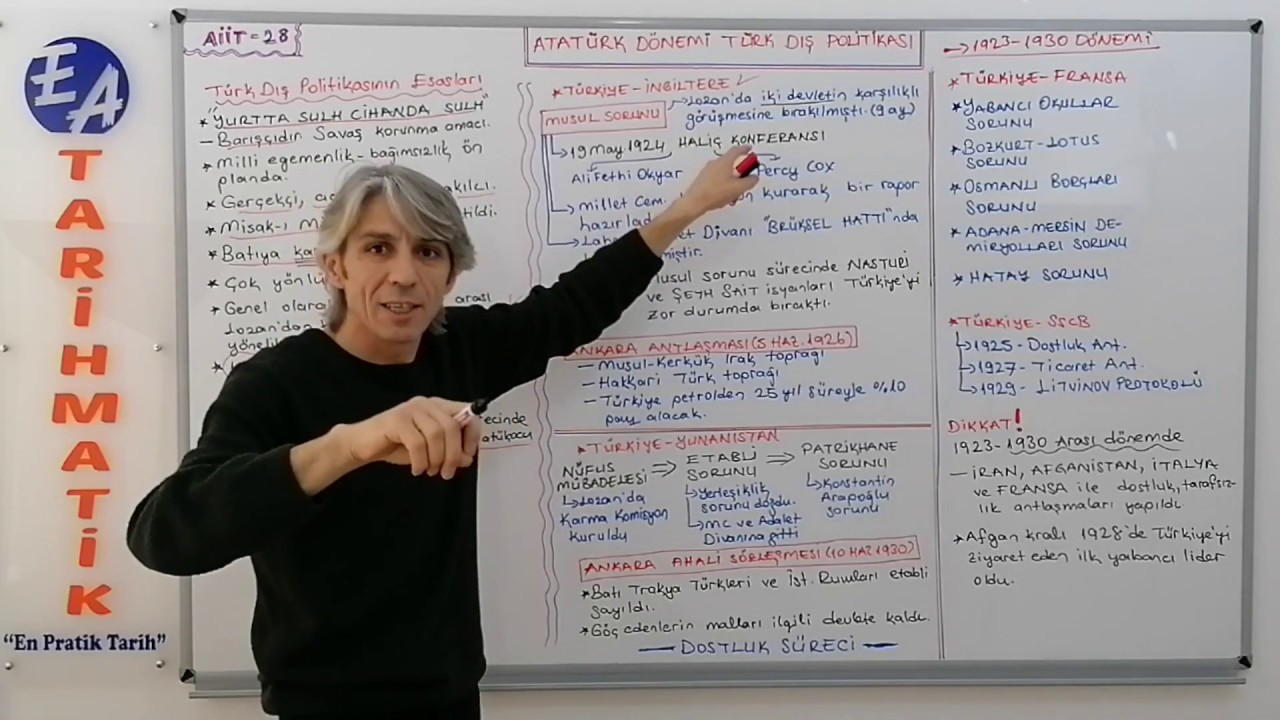 EA
TARİHMATİK
“En Pratik Tarih”
AİİT=28
ATATÜRK DÖNEMİ TÜRK DIŞ POLİTİKASI
Türk Dış Politikasının Esasları
* "YURTTA SULH CİHANDA SULH"
- Barışçıdır. Savaş korunma amacı.
* Milli egemenlik-bağımsızlık ön
planda.
* Gerçekçi, akılcı.
* Misak-ı
* Batıya
* Çok yönlü
* Genel olara arası
Lozan'dan
yönelik
ecinde
* TÜRKİYE-İNGİLTERE ✓
MUSUL SORUNU
→ Lozan'da iki devletin karşılıklı
görüşmesine bırakılmıştı. (9 ay)
→ 19 May. 1924 HALİÇ KONFERANSI
Ali Fethi Okyar Percy Cox
→ Millet Cem. kurarak bir rapor
hazırlad
→ Lah et Divanı "BRÜKSEL HATTI"nda
miştir.
Musul sorunu sürecinde NASTURİ
ve ŞEYH SAİT isyanları Türkiye'yi
zor durumda bıraktı.
ANKARA ANTLAŞMASI (5 HAZ. 1926)
- Musul-Kerkük Irak toprağı
- Hakkari Türk toprağı
- Türkiye petrolden 25 yıl süreyle %10
pay alacak.
* TÜRKİYE-YUNANİSTAN
NÜFUS MÜBADELESİ ⇒ ETABLİ SORUNU ⇒ PATRİKHANE SORUNU
↳ Lozan'da
Karma Komisyon
Kuruldu
↳ Yerleşiklik
sorunu doğdu.
↳ MC ve Adalet
Divanına gitti
↳ Konstantin
Arapoğlu
sorunu
ANKARA AHALİ SÖZLEŞMESİ (10 HAZ 1930)
* Batı Trakya Türkleri ve İst. Rumları etabli
sayıldı.
* Göç edenlerin malları ilgili devlete kaldı.
— DOSTLUK SÜRECİ —
→ 1923-1930 DÖNEMİ
* TÜRKİYE-FRANSA
* YABANCI OKULLAR
SORUNU
* BOZKURT-LOTUS
SORUNU
* OSMANLI BORÇLARI
SORUNU
* ADANA-MERSİN DE-
MİRYOLLARI SORUNU
* HATAY SORUNU
* TÜRKİYE-SSCB
→ 1925- Dostluk Ant.
→ 1927- Ticaret Ant.
→ 1929- LİTVİNOV PROTOKOLÜ
DİKKAT!
1923-1930 Arası dönemde
— İRAN, AFGANİSTAN, İTALYA
ve FRANSA ile dostluk, tarafsız-
lık antlaşmaları yapıldı.
* Afgan kralı 1928'de Türkiye'yi
ziyaret eden ilk yabancı lider
oldu.